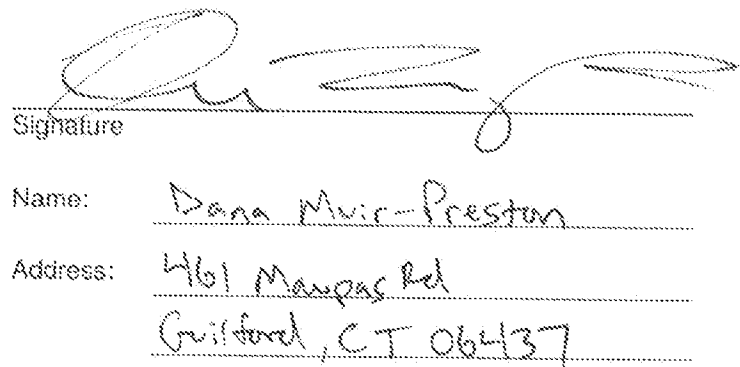 Signature
Name: Dana Muir-Preston
Address: 461 Maupas Rd
Guilford, CT 06437